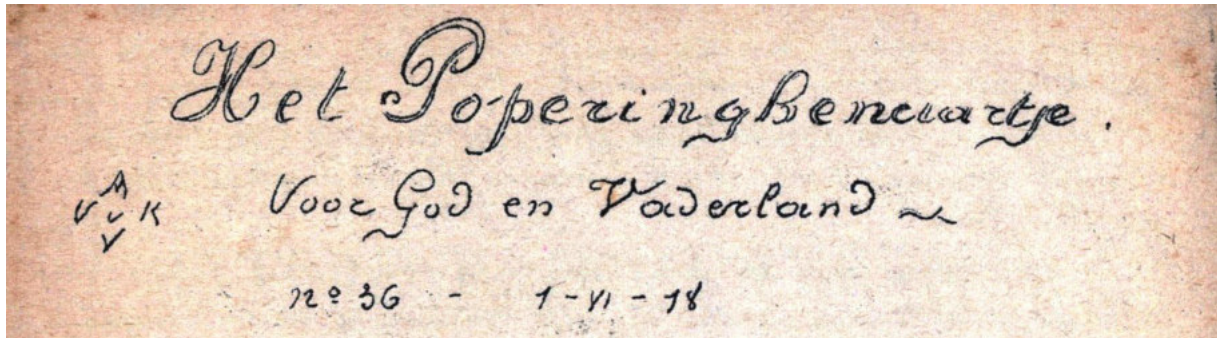 Het Poperinghenaartje.
A
V V K
V
Voor God en Vaderland
nº 36 - 1-VI-18